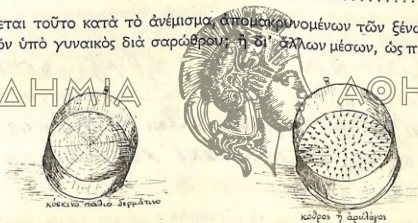 εται τοῦτο κατὰ τὸ ἀνέμισμα, ἀπομακρυνομένων τῶν ξένω
όν ὑπὸ γυναικὸς διὰ σαρώθρου; ἢ δι' ἄλλων μέσων, ὡς π
ΔΗΜΙΑ ΑΘΗ
κόσκινο παλιό δερμάτινο
κόθρος ἢ ἀρυλόγος